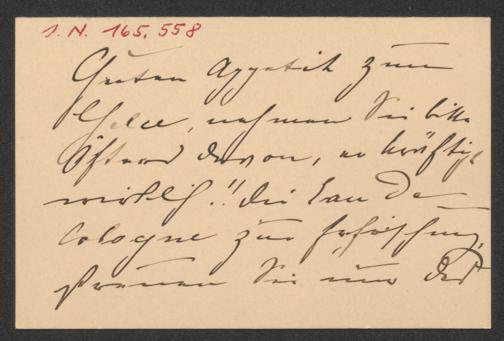 I. N. 165.558
Guten Appetit zum
Gelee, nehmen Sie bitte
öfters davon, er kräftigt
wirklich!! die Eau de
Cologne zur Erfrischung,
Sie nur